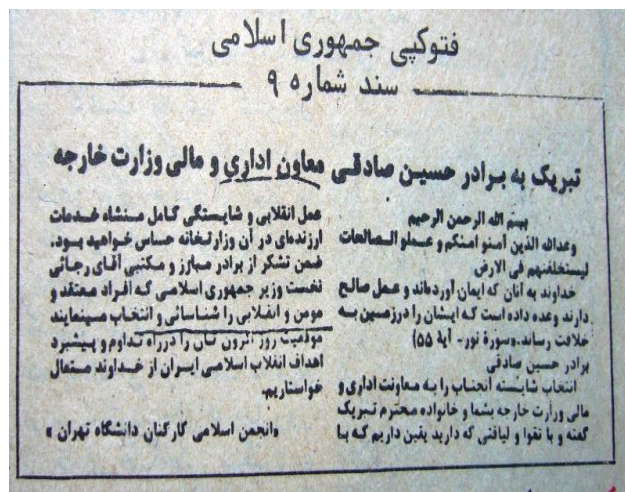 فتوکپی جمهوری اسلامی
سند شماره ۹
تبریک به برادر حسین صادقی معاون اداری و مالی وزارت خارجه
بسم الله الرحمن الرحیم
وعدالله الذین آمنو امنکم و عملو الصالحات
لیستخلفنهم فی الارض
خداوند به آنان که ایمان آورده‌اند و عمل صالح
دارند وعده داده است که ایشان را درزمین به
خلافت رساند.«سورهٔ نور- آیهٔ ۵۵»
برادر حسین صادقی
انتخاب شایسته آنجناب را به معاونت اداری و
مالی وزارت خارجه بشما و خانواده محترم تبریک
گفته و با تقوا و لیاقتی که دارید یقین داریم که با
عمل انقلابی و شایستگی کامل منشاء خدمات
ارزنده‌ای در آن وزارتخانه حساس خواهید بود.
ضمن تشکر از برادر مبارز و مکتبی آقای رجائی
نخست وزیر جمهوری اسلامی که افراد معتقد و
مومن و انقلابی را شناسائی و انتخاب مینمایند
موفقیت روز افزون تان را درراه تداوم و پیشبرد
اهداف انقلاب اسلامی ایران از خداوند متعال
خواستاریم.
«انجمن اسلامی کارکنان دانشگاه تهران»